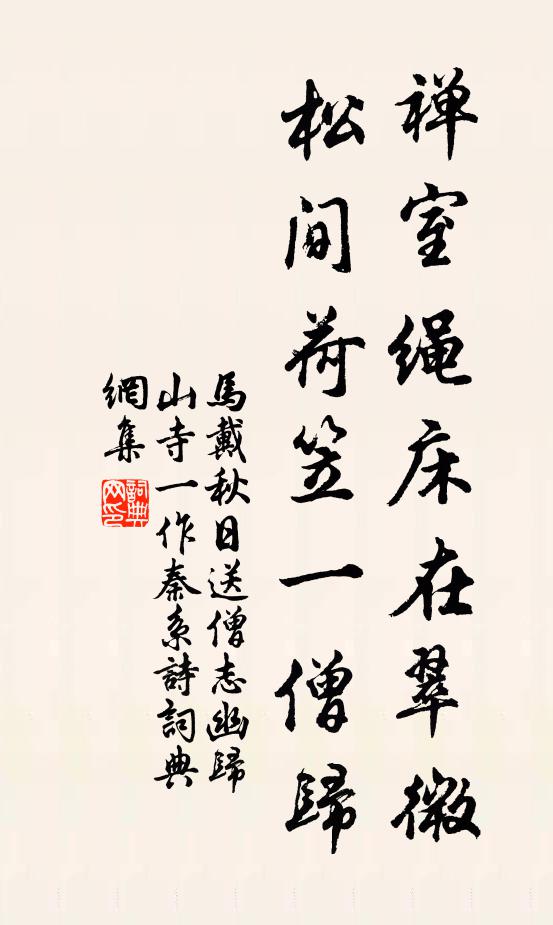 禅室绳床在翠微
松间荷笠一僧歸
馬戴秋日送僧志幽歸
山寺一作秦系詩詞典
網集
詞典
网印